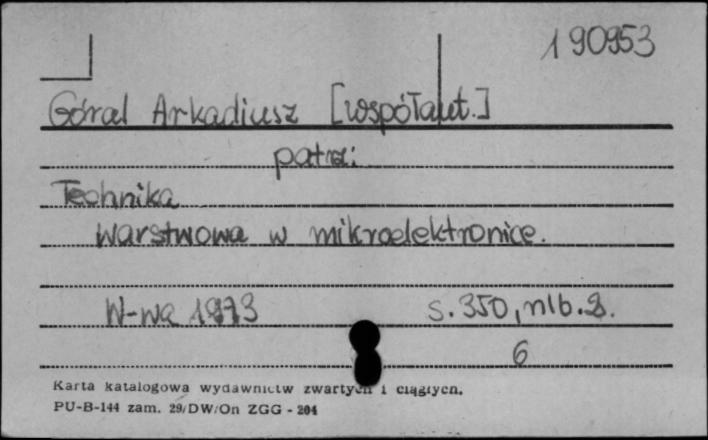 190953
Góral Arkadiusz [współaut.]
patrz:
Technika
warstwowa w mikroelektronice.
W-wa 1973 s. 350, nlb. 2.
6
Karta katalogowa wydawnictw zwartych i ciągłych.
PU-B-144 zam. 29/DW/On ZGG - 204